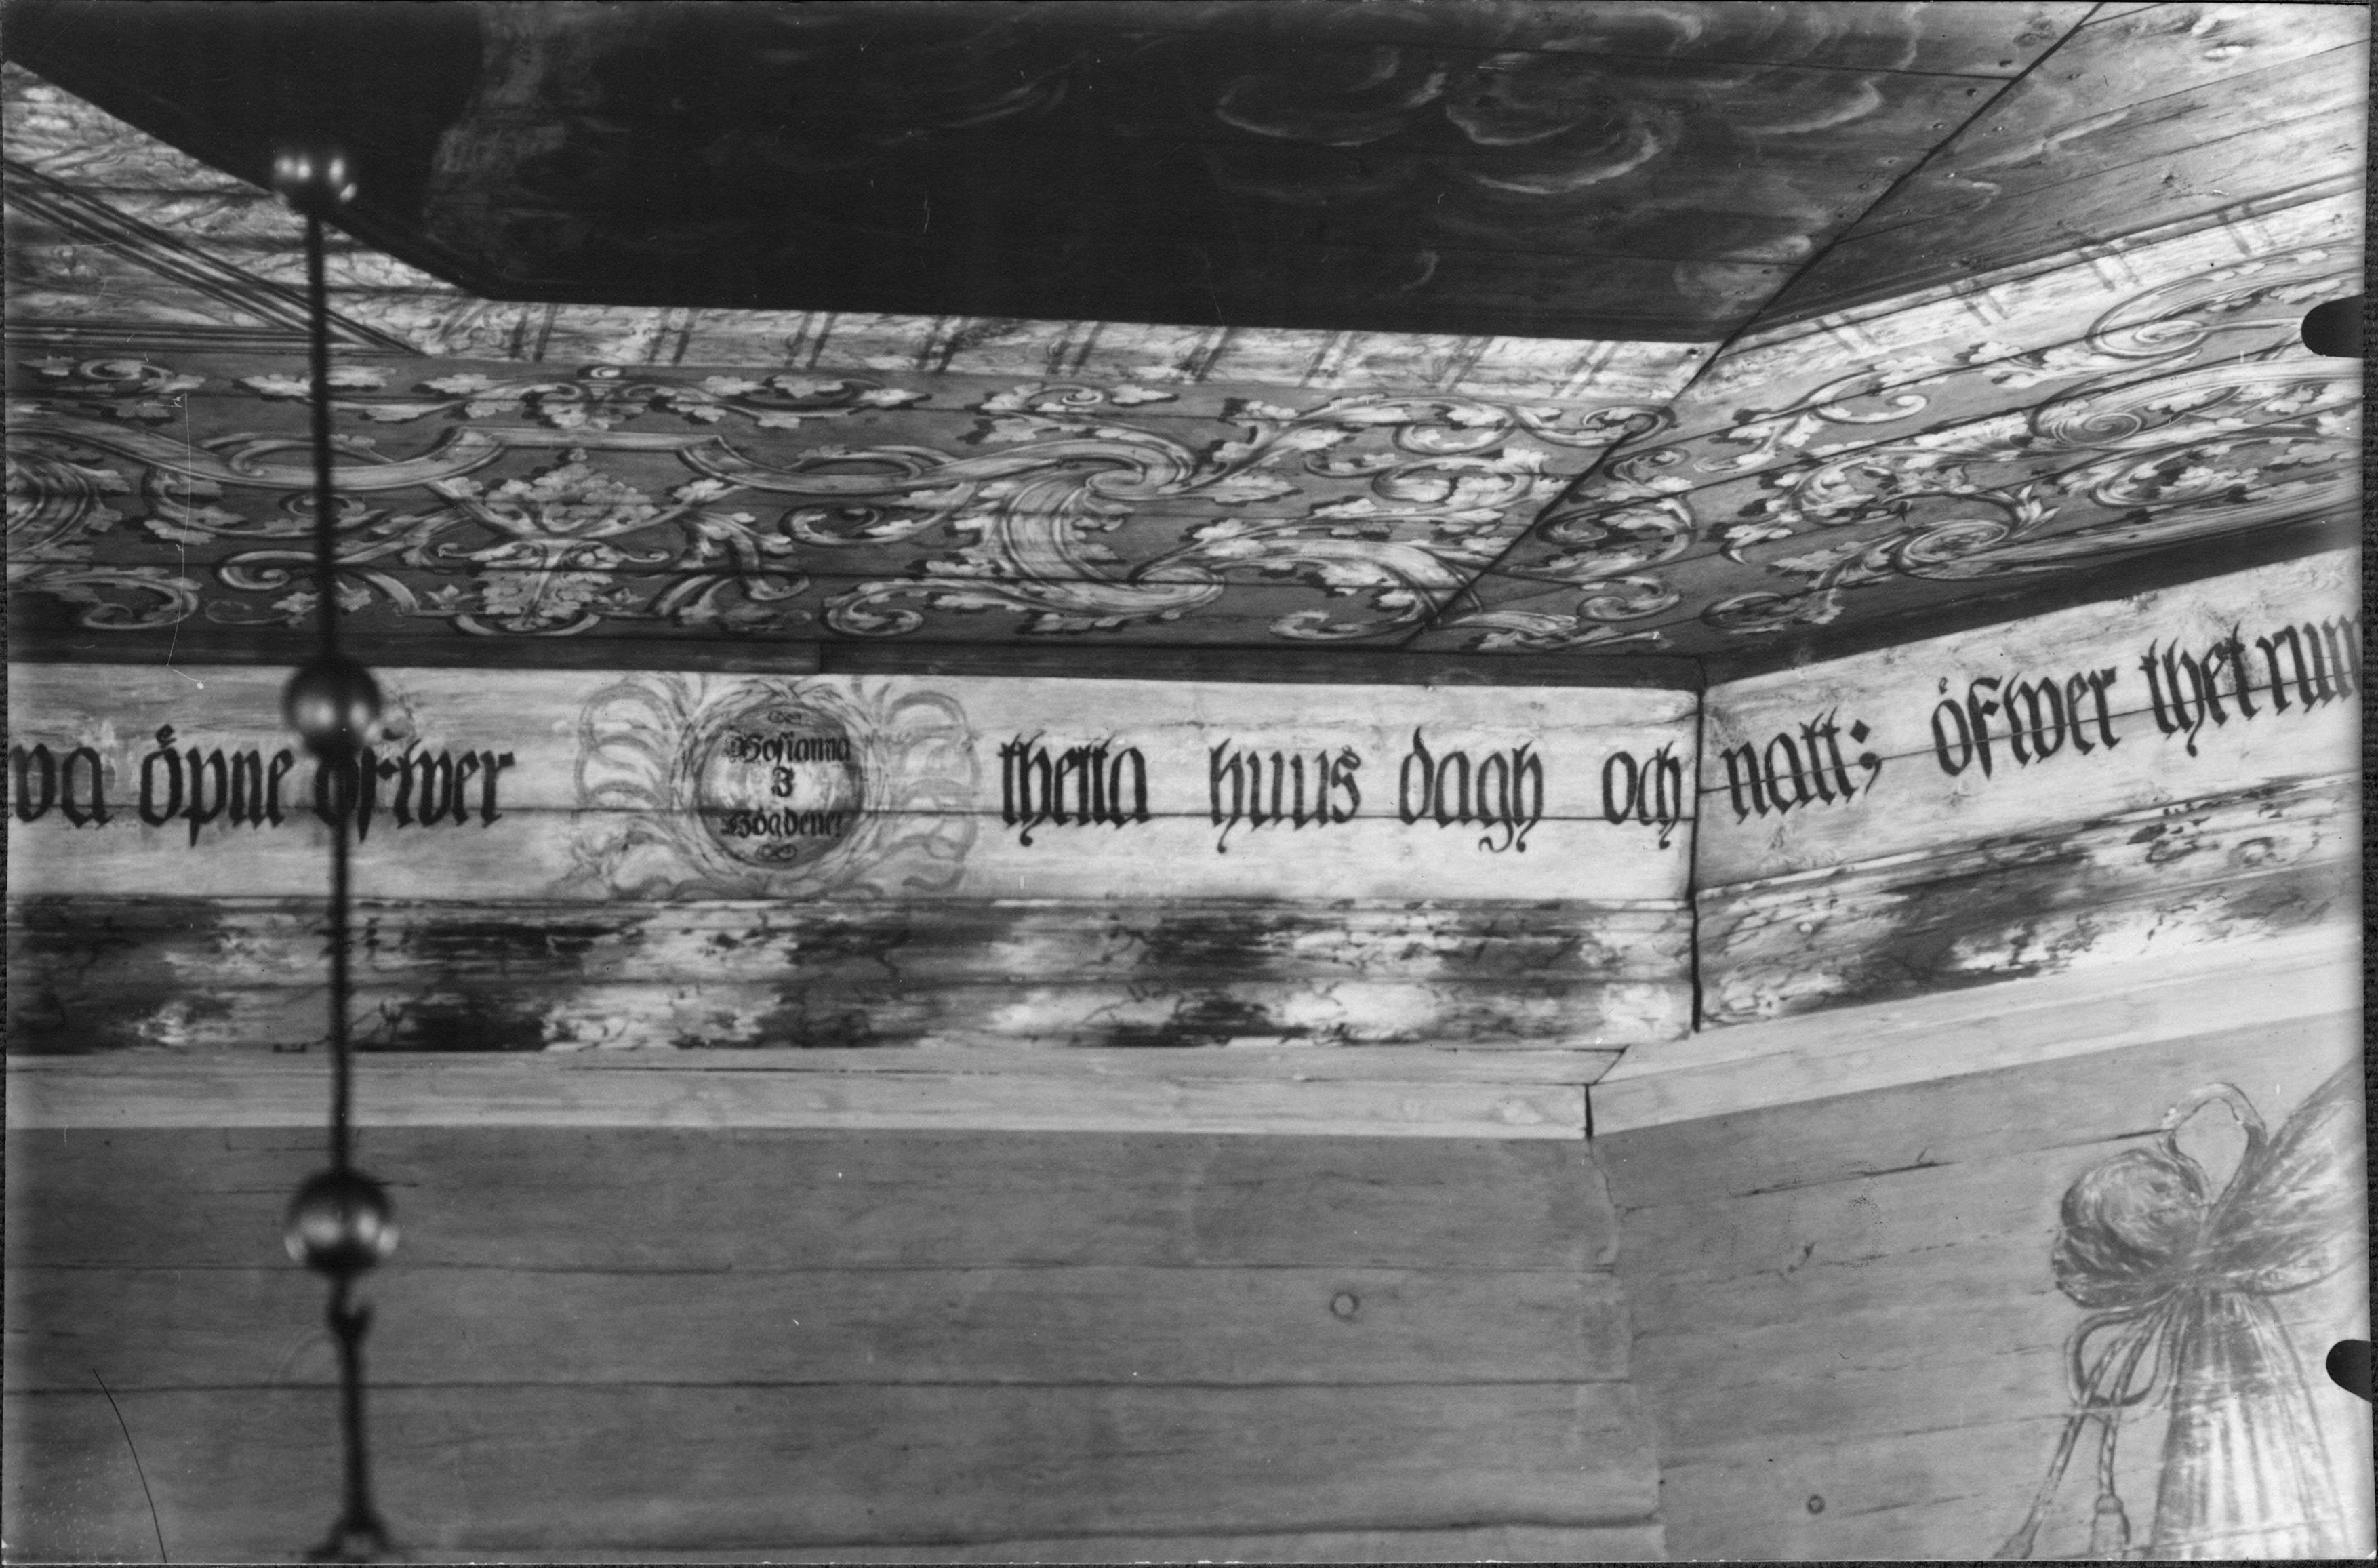 öpne öfwer
Hosianna
I
Högdenet
thetta huus dagh och
natt; öfwer thet rum